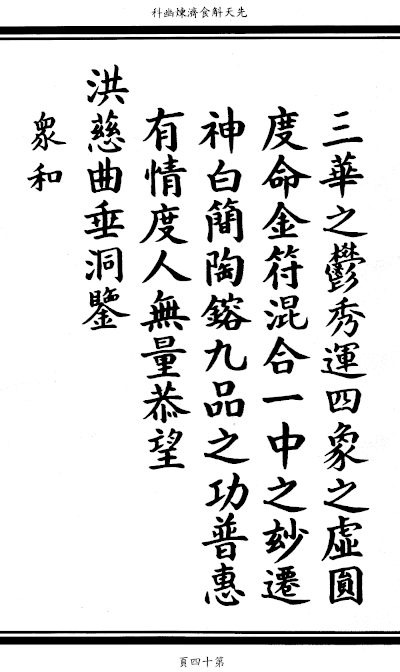 先天斛食濟煉幽科
三華之鬱秀運四象之虛圓
度命金符混合一中之玅遷
神白簡陶鎔九品之功普惠
有情度人無量恭望
洪慈曲垂洞鑒
衆和
第十四頁